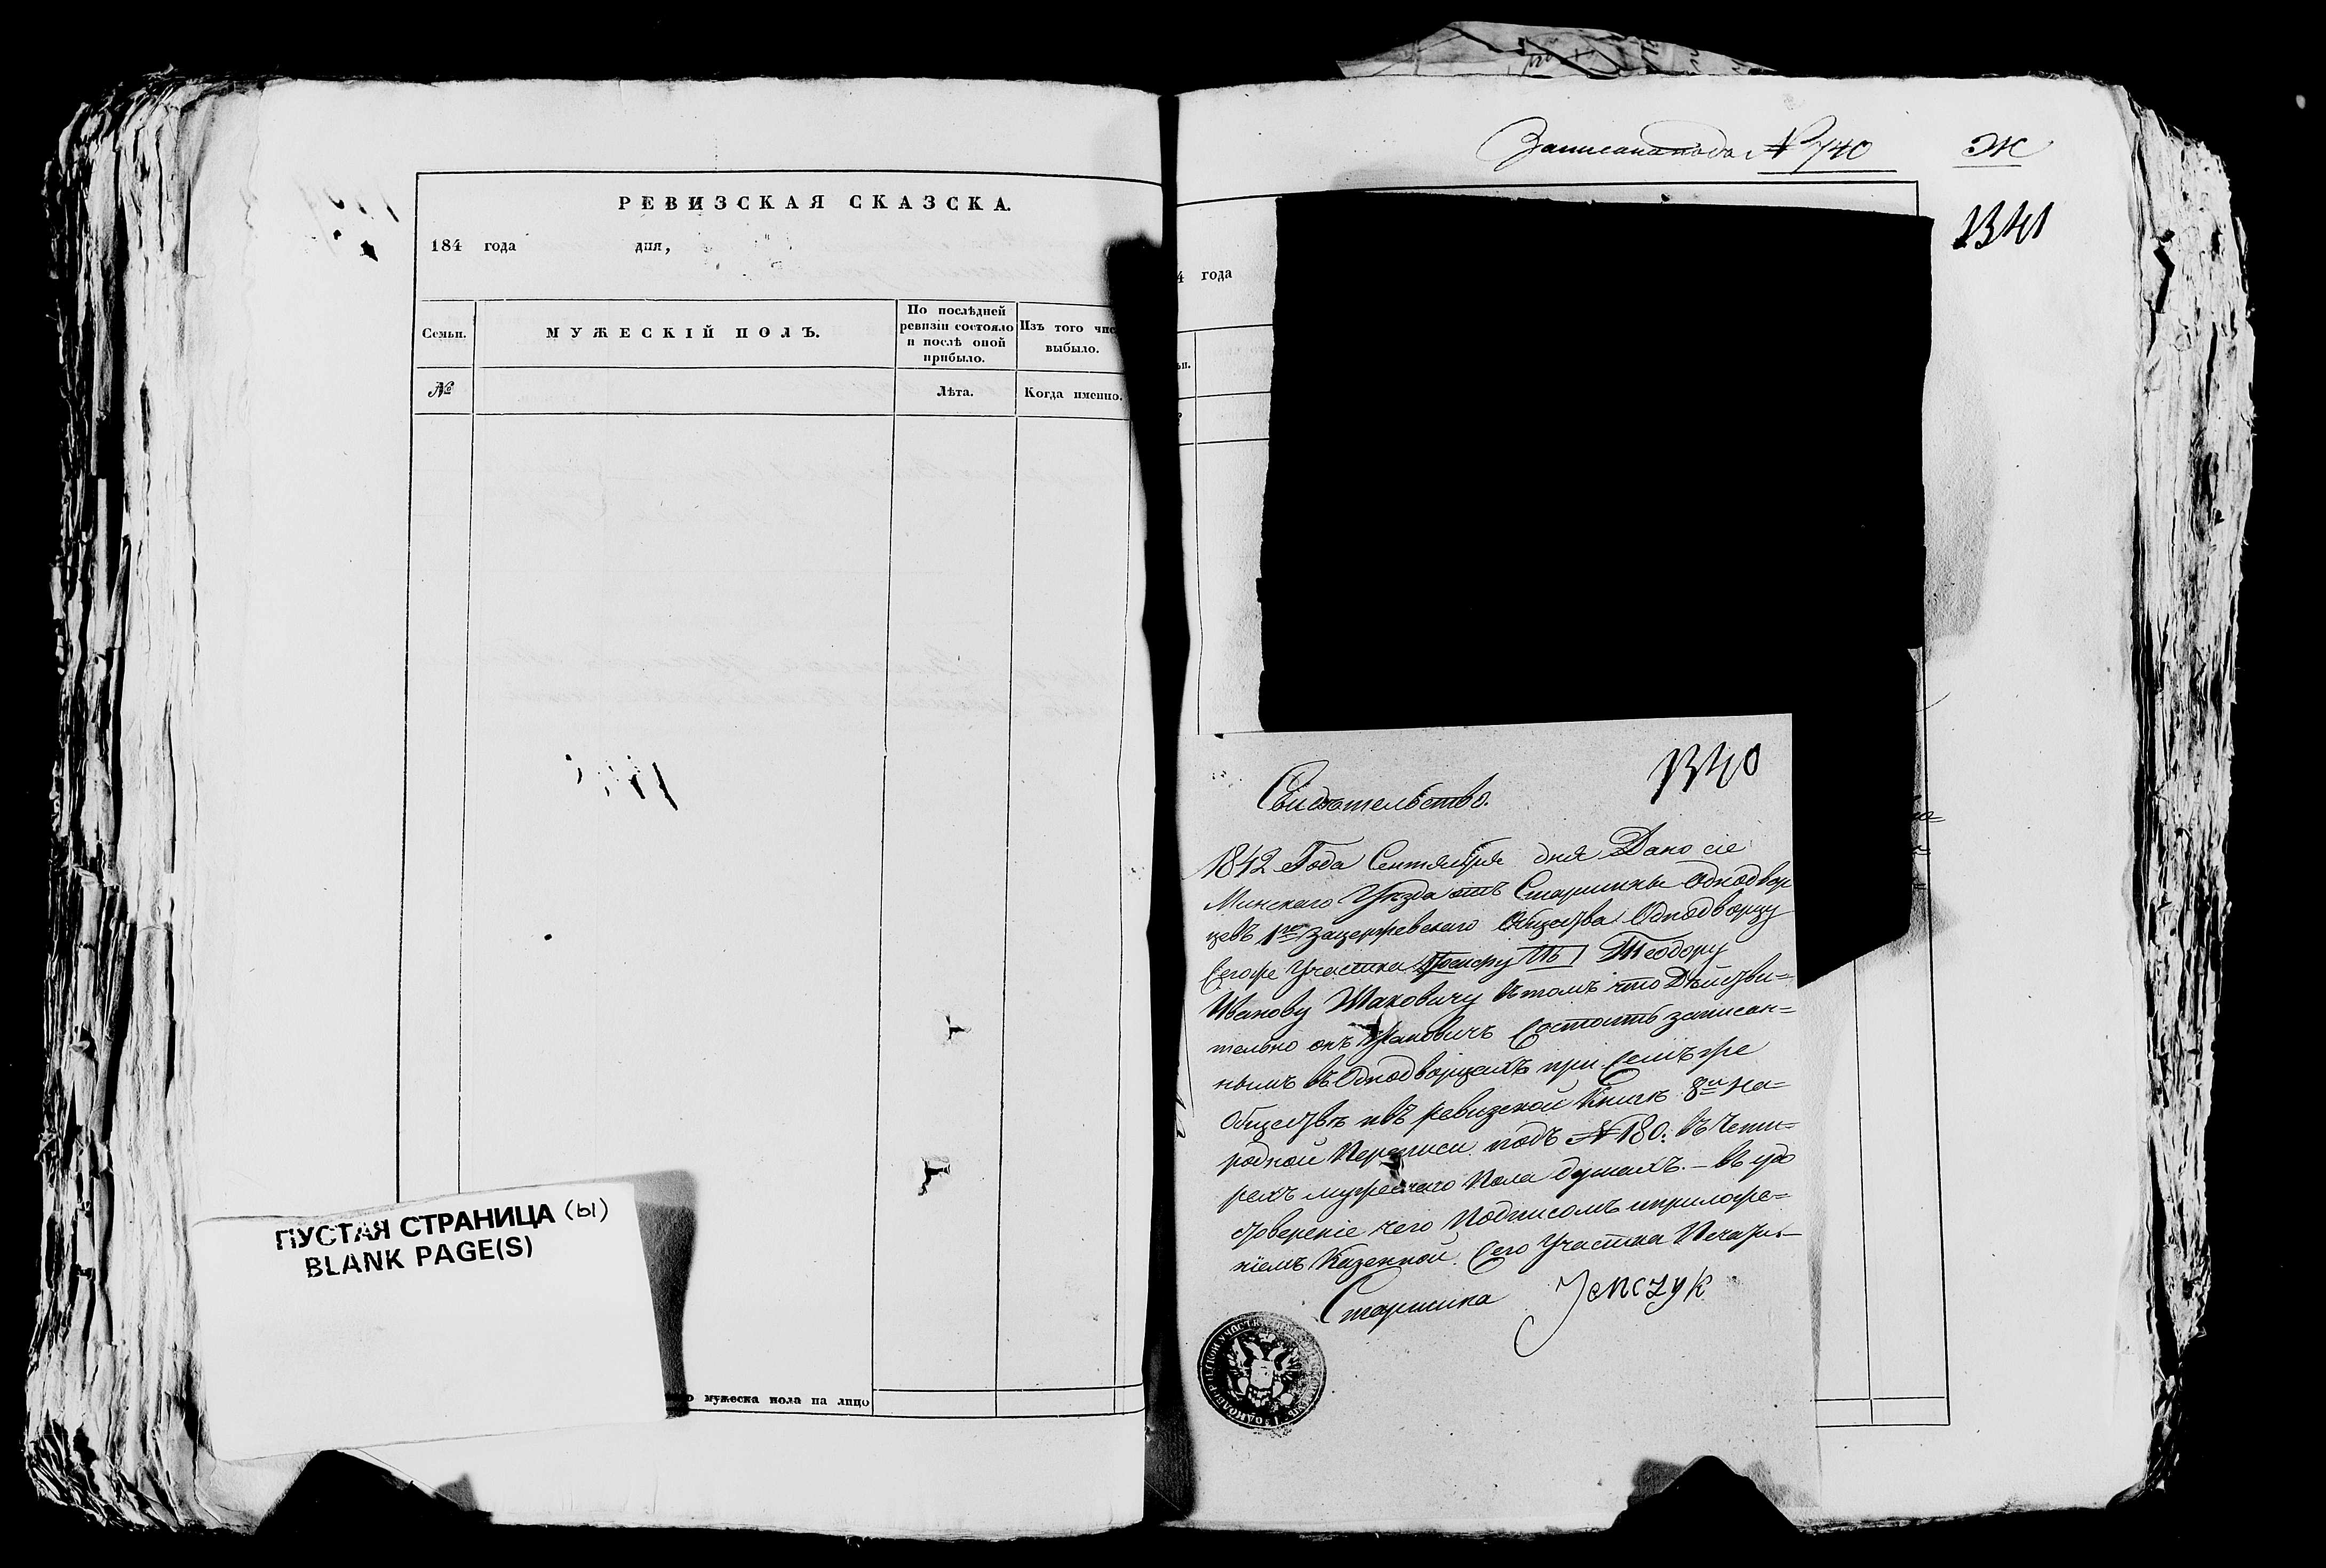 РЕВИЗСКАЯ СКАЗСКА.
184 года дня,
Семьи.
МУЖЕСКІЙ ПОЛЪ.
По послѣдней
ревизіи состояло
и послѣ оной
прибыло.
Изъ того чис
выбыло.
№
Лѣта.
Когда именно.
ПУСТАЯ СТРАНИЦА (ы)
BLANK PAGE(S)
мужеска пола на лицо
Записана № 740
Ж
1341
4 года
1340
Свидѣтельство.
1842 Года Сентября дня Дано сіе
Минскаго Уѣзда отъ Старшины Однодвор
цевъ 1го Общества Однодворцу
Сегоже Участка Теодору
Иванову Маковичу въ томъ что Дѣйстви=
тельно онъ Маковичъ Состоитъ записан=
нымъ въ Однодворцахъ при Семъ же
Обществѣ и въ ревизской Книгѣ 8й На=
родной Переписи подъ № 180: въ Четы=
рехъ мужескаго Пола душахъ. — въ удо
стовереніе чего Подписомъ и приложе=
ніемъ Казенной Сего Участка Печати
Старшина